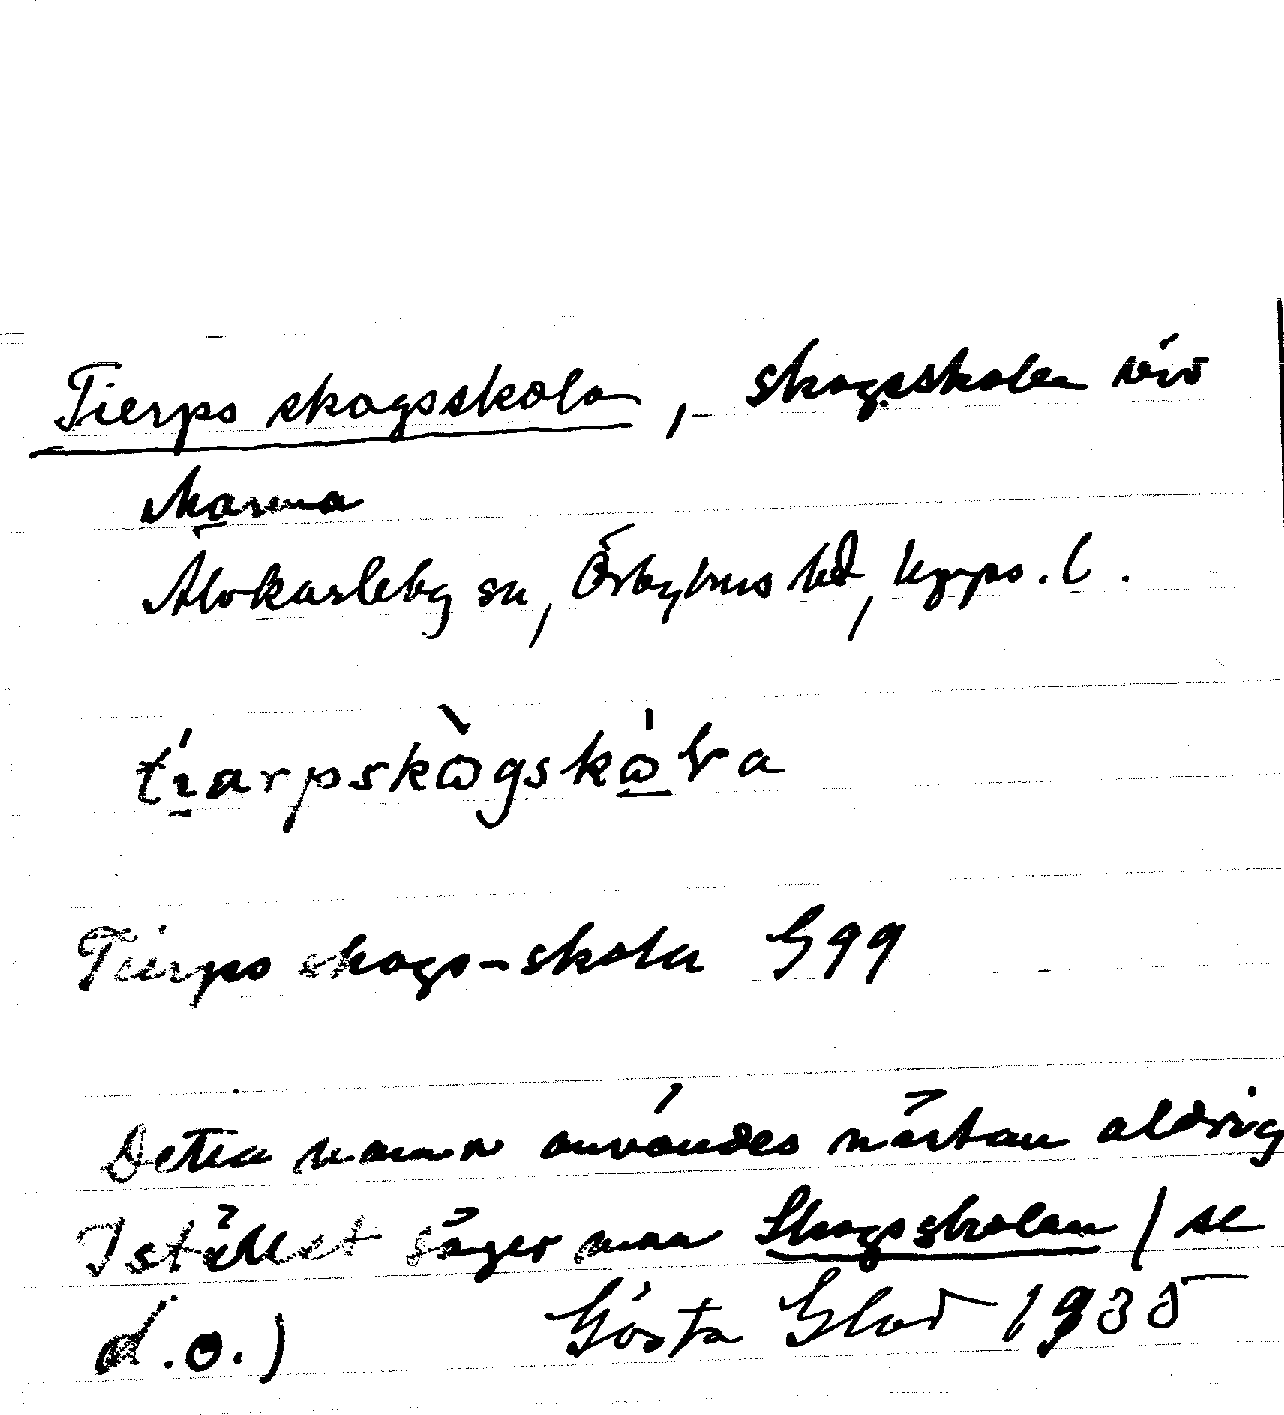 Tierps skogsskola, skogsskolan vid
Marma
Älvkarleby sn, Örbyhus hd, Upps. l.
tı́arpskὼgskω̍ƚa
Tierps skogs-skola G 99
Detta namn användes nästan aldrig
Istället säger man Skogsskolan (se
d.o.) Gösta Glad 1935